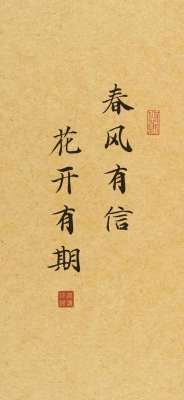 春风有信
花开有期